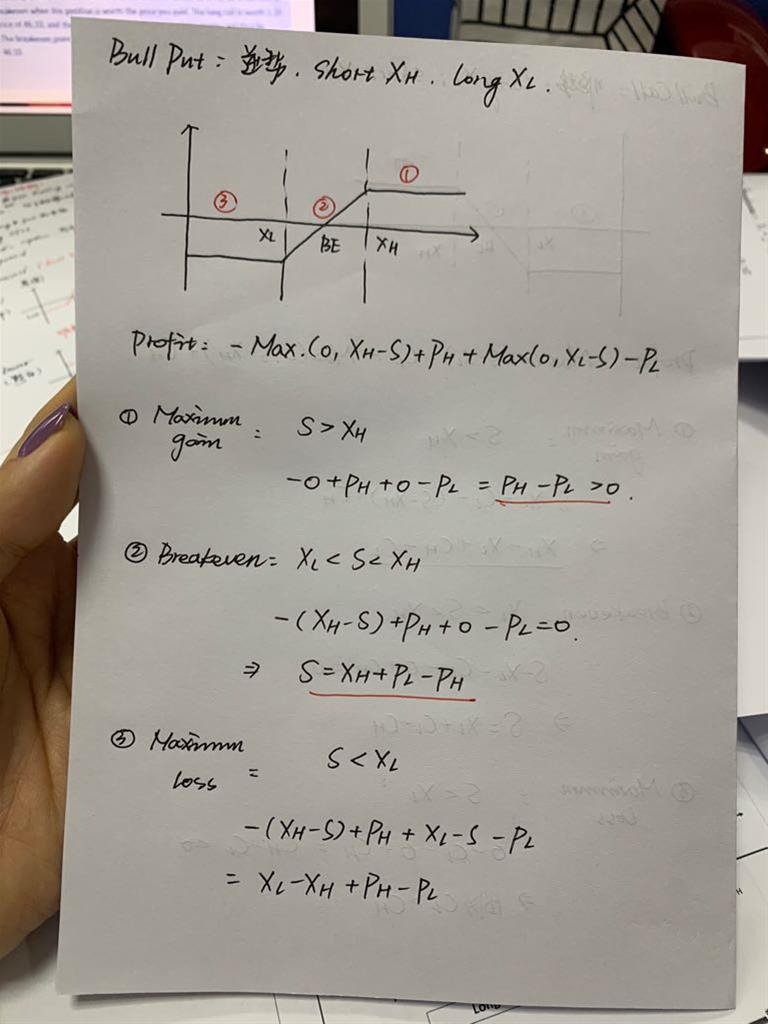 Bull Put = . Short XH . Long XL .
③ ② ①
XL BE XH
Profit: - Max.(0, XH-S)+PH + Max(0, XL-S) - PL
① Maximum gain : S > XH
-0 + PH + 0 - PL = PH - PL > 0 .
② Breakeven = XL < S < XH
-(XH-S)+PH+0-PL=0.
⇒ S = XH+PL-PH
③ Maximum Loss = S < XL
-(XH-S)+PH + XL-S - PL
= XL-XH+PH-PL